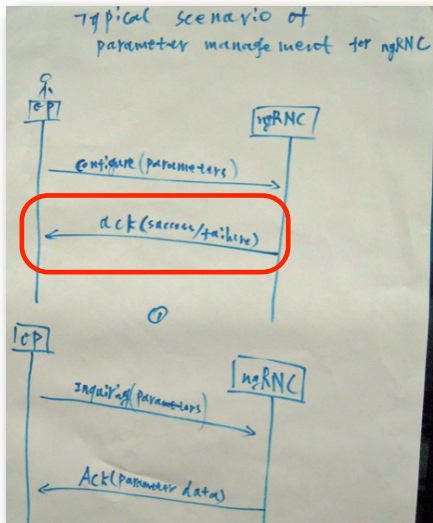 Typical scenario of
parameter management for ngRNC
ngRNC
Configure(parameters)
ack(success/failure)
①
ngRNC
Inquiring(parameters)
Ack(parameter data)